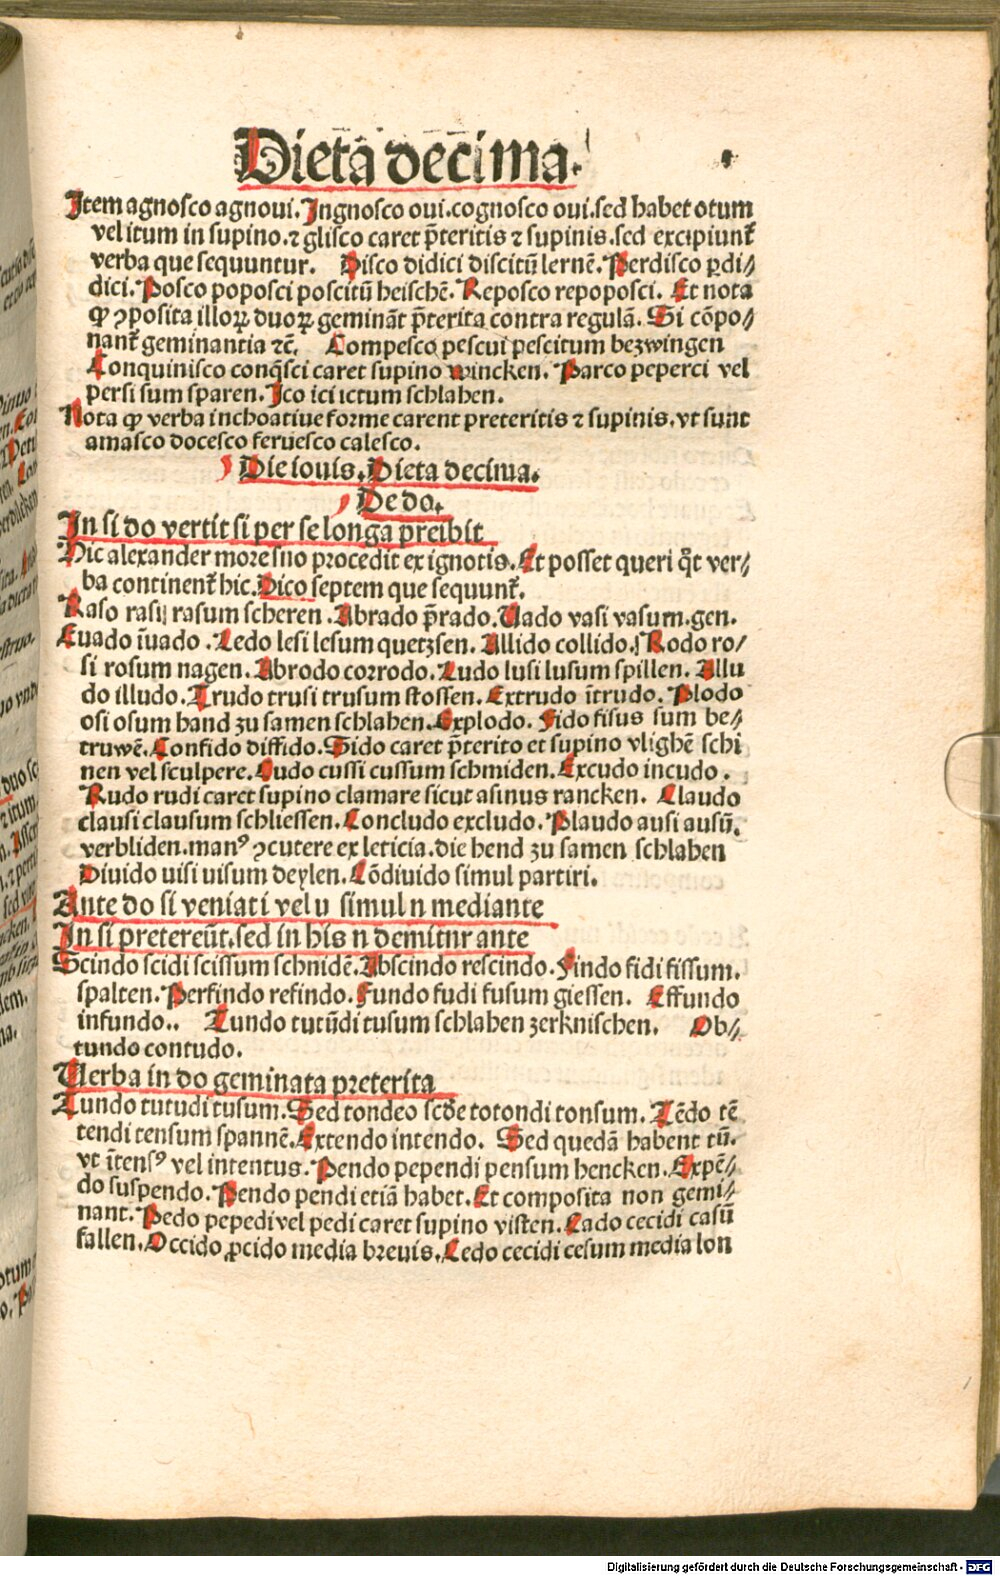 Dieta decima.
Item agnosco agnoui. Ingnosco oui. cognosco oui. sed habet otum
vel itum in supino. ⁊ glisco caret p̄teritis ⁊ supinis. sed excipiunt᷑
verba que sequuntur. Disco didici discitū lernē. Perdisco ꝑdi⸗
dici. Posco poposci poscitū heischē. Reposco repoposci. Et nota
ꝙ ꝯposita illoꝝ duoꝝ gemināt p̄terita contra regulā. Si cōpo⸗
nant᷑ geminantia ⁊c̄. Compesco pescui pescitum bezwingen
Conquinisco conq̄sci caret supino wincken. Parco peperci vel
persi sum sparen. Ico ici ictum schlahen.
Nota ꝙ verba inchoatiue forme carent preteritis ⁊ supinis. vt sunt
amasco docesco feruesco calesco.
Die iouis. Dieta decima.
De do.
In si do vertit si per se longa preibit
Hic alexander more suo procedit ex ignotis. Et posset queri q̄t ver⸗
ba continent᷑ hic. Dico septem que sequunt᷑.
Raso rasi rasum scheren. Abrado p̄rado. Uado vasi vasum. gen.
Euado īuado. Ledo lesi lesum quetzsen. Allido collido. Rodo ro⸗
si rosum nagen. Abrodo corrodo. Ludo lusi lusum spillen. Allu
do illudo. Trudo trusi trusum stossen. Extrudo ītrudo. Plodo
osi osum hand zu samen schlahen. Explodo. Fido fisus sum be⸗
truwē. Confido diffido. Sido caret p̄terito et supino vlighē schi
nen vel sculpere. Cudo cussi cussum schmiden. Excudo incudo.
Rudo rudi caret supino clamare sicut asinus rancken. Claudo
clausi clausum schliessen. Concludo excludo. Plaudo ausi ausū.
verbliden. manꝰ ꝯcutere ex leticia. die hend zu samen schlahen
Diuido uisi uisum deylen. Cōdiuido simul partiri.
Ante do si veniat i vel u simul n mediante
In si pretereūt. sed in his n demitur ante
Scindo scidi scissum schnidē. Abscindo rescindo. Findo fidi fissum.
spalten. Perfindo refindo. Fundo fudi fusum giessen. Effundo
infundo.. Tundo tutūdi tusum schlahen zerknischen. Ob⸗
tundo contudo.
Uerba in do geminata preterita
Tundo tutudi tusum. Sed tondeo scd̄e totondi tonsum. Tēdo tē
tendi tensum spannē. Extendo intendo. Sed quedā habent tū.
vt ītensꝰ vel intentus. Pendo pependi pensum hencken. Expē⸗
do suspendo. Pendo pendi etiā habet. Et composita non gemi⸗
nant. Pedo pepedi vel pedi caret supino visten. Cado cecidi casū
fallen. Occido ꝓcido media breuis. Cedo cecidi cesum media lon
Digitalisierung gefördert durch die Deutsche Forschungsgemeinschaft - DFG